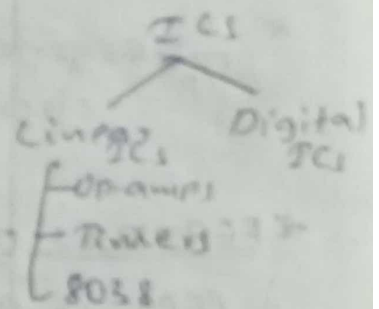 ICs
Linear ICs
Digital ICs
Op-amps
Timers
8038